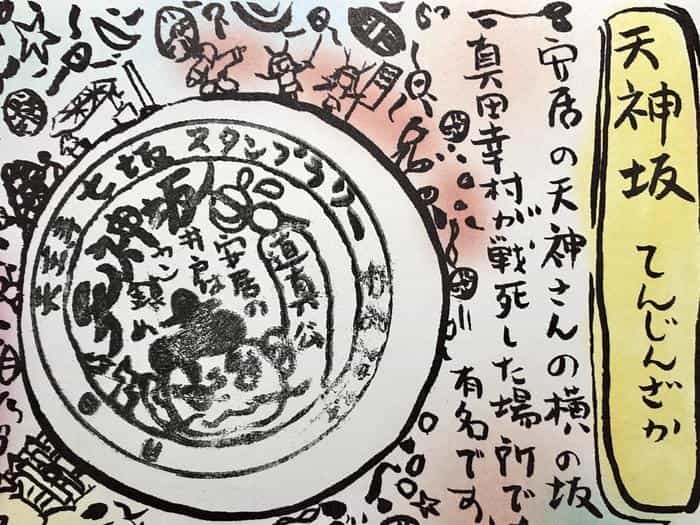 天神坂 てんじんざか
安居の天神さんの横の坂
真田幸村が戦死した場所で
有名です
天王寺七坂スタンプラリー
天神坂
道真公
安居の
井戸は
カン鎮め